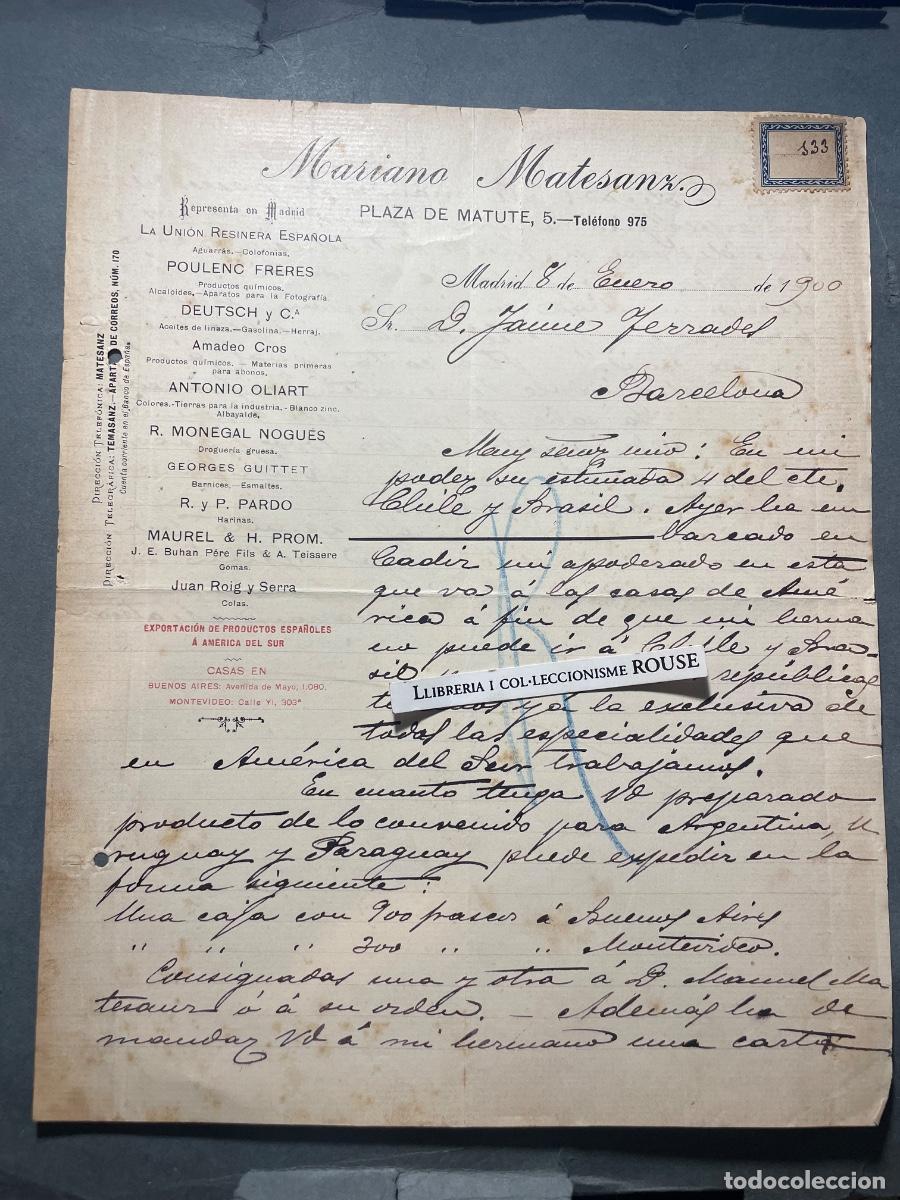 Mariano Matesanz.
333
Representa en Madrid
PLAZA DE MATUTE, 5.—Teléfono 975
LA UNIÓN RESINERA ESPAÑOLA
Aguarrás.—Colofonias.
POULENC FRERES
Productos químicos.
Alcaloides.—Aparatos para la Fotografía.
DEUTSCH y C.ª
Aceites de linaza.—Gasolina.—Herraj.
Amadeo Cros
Productos químicos. — Materias primeras
para abonos.
ANTONIO OLIART
Colores.-Tierras para la industria.-Blanco zinc.
Albayalde.
R. MONEGAL NOGUES
Droguería gruesa.
GEORGES GUITTET
Barnices.—Esmaltes.
R. y P. PARDO
Harinas.
MAUREL & H. PROM.
J. E. Buhan Pére Fils & A. Teissere
Gomas.
Juan Roig y Serra
Colas.
EXPORTACIÓN DE PRODUCTOS ESPAÑOLES
Á AMÉRICA DEL SUR
CASAS EN
BUENOS AIRES: Avenida de Mayo, 1.080.
MONTEVIDEO: Calle Yi, 303ª
DIRECCIÓN TELEFÓNICA: MATESANZ
DIRECCIÓN TELEGRÁFICA: TEMASANZ.—APARTADO DE CORREOS, NÚM. 170
Cuenta corriente en el Banco de España.
Madrid 8 de Enero de 1900
Sr. D. Jaime Terrades
Barcelona
Muy señor mio: En mi
poder su estimada 4 del cte.
Chile y Brasil. Ayer ha em
barcado en
Cadiz mi apoderado en esta
que va á las casas de Amé-
rica á fin de que mi herma
no puede ir á Chile y Bra-
sil repúblicas
ya la exclusiva de
todas las especialidades que
en América del Sur trabajamos.
En cuanto tenga Vd preparado
producto de lo convenido para Argentina, U
ruguay y Paraguay puede expedir en la
forma siguiente:
Una caja con 900 frascos á Buenos Aires
" " " 300 " " Montevideo.
Consignadas una y otra á D. Manuel Ma
tesanz ó á su orden. — Además ha de
mandar Vd á mi hermano una carta
LLIBRERIA I COL·LECCIONISME ROUSE
todocoleccion